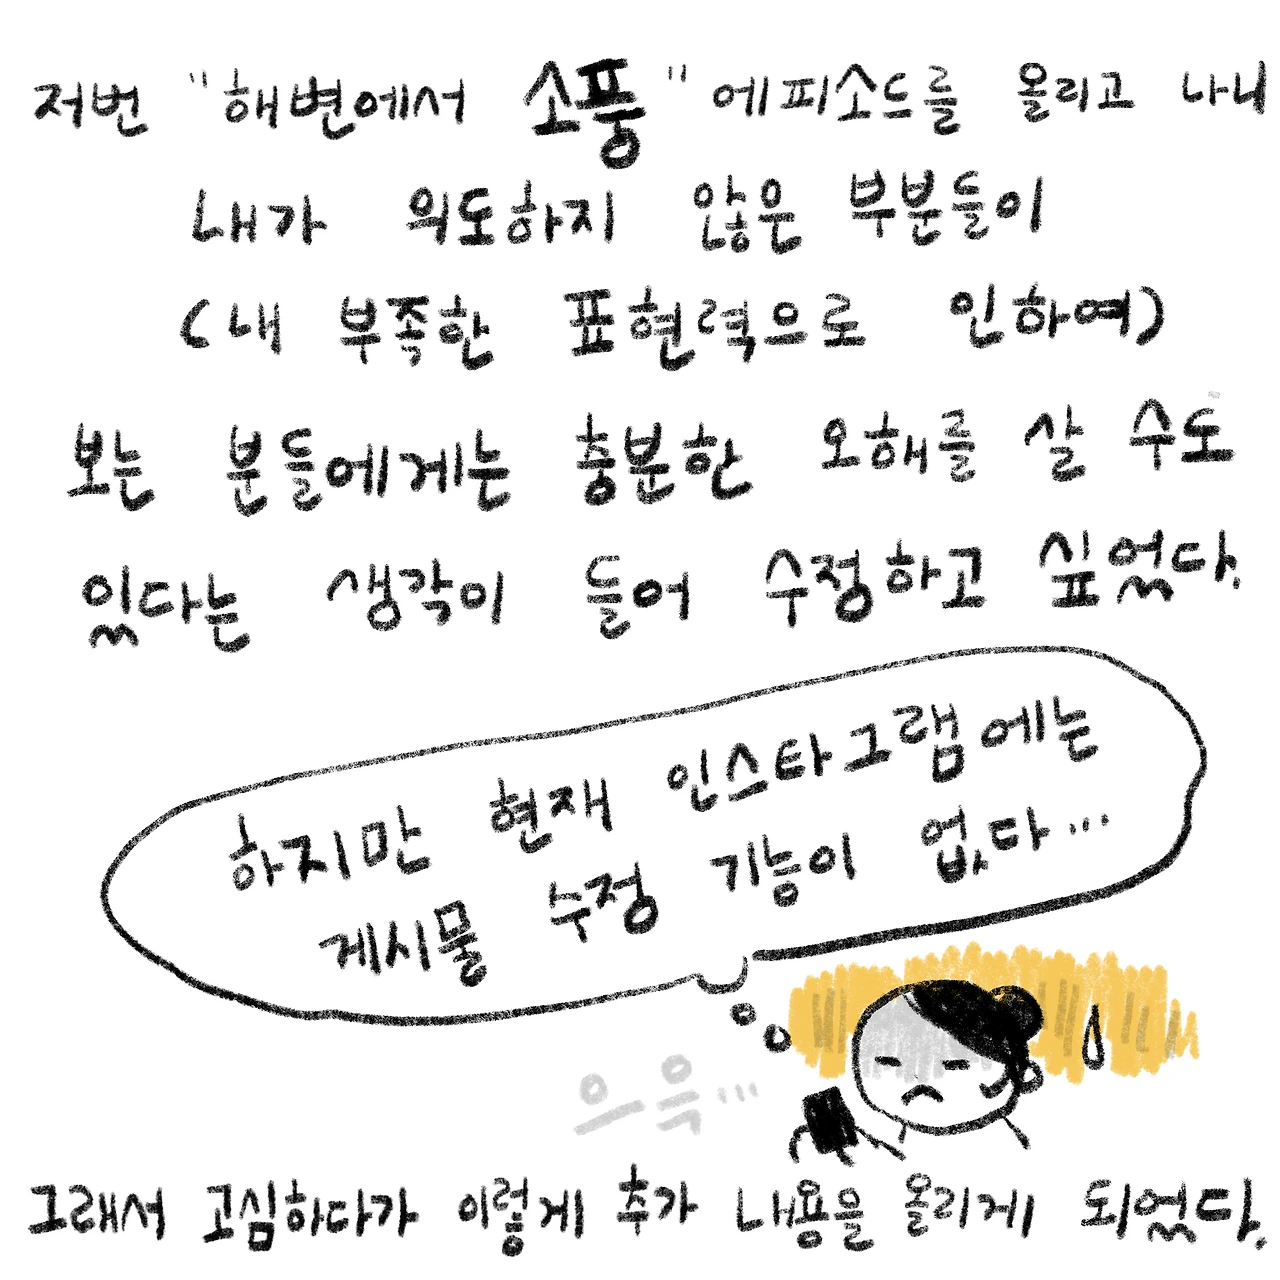 저번 "해변에서 소풍" 에피소드를 올리고 나니
내가 의도하지 않은 부분들이
(내 부족한 표현력으로 인하여)
보는 분들에게는 충분한 오해를 살 수도
있다는 생각이 들어 수정하고 싶었다.
하지만 현재 인스타그램에는
게시물 수정 기능이 없다...
으윽...
그래서 고심하다가 이렇게 추가 내용을 올리게 되었다.